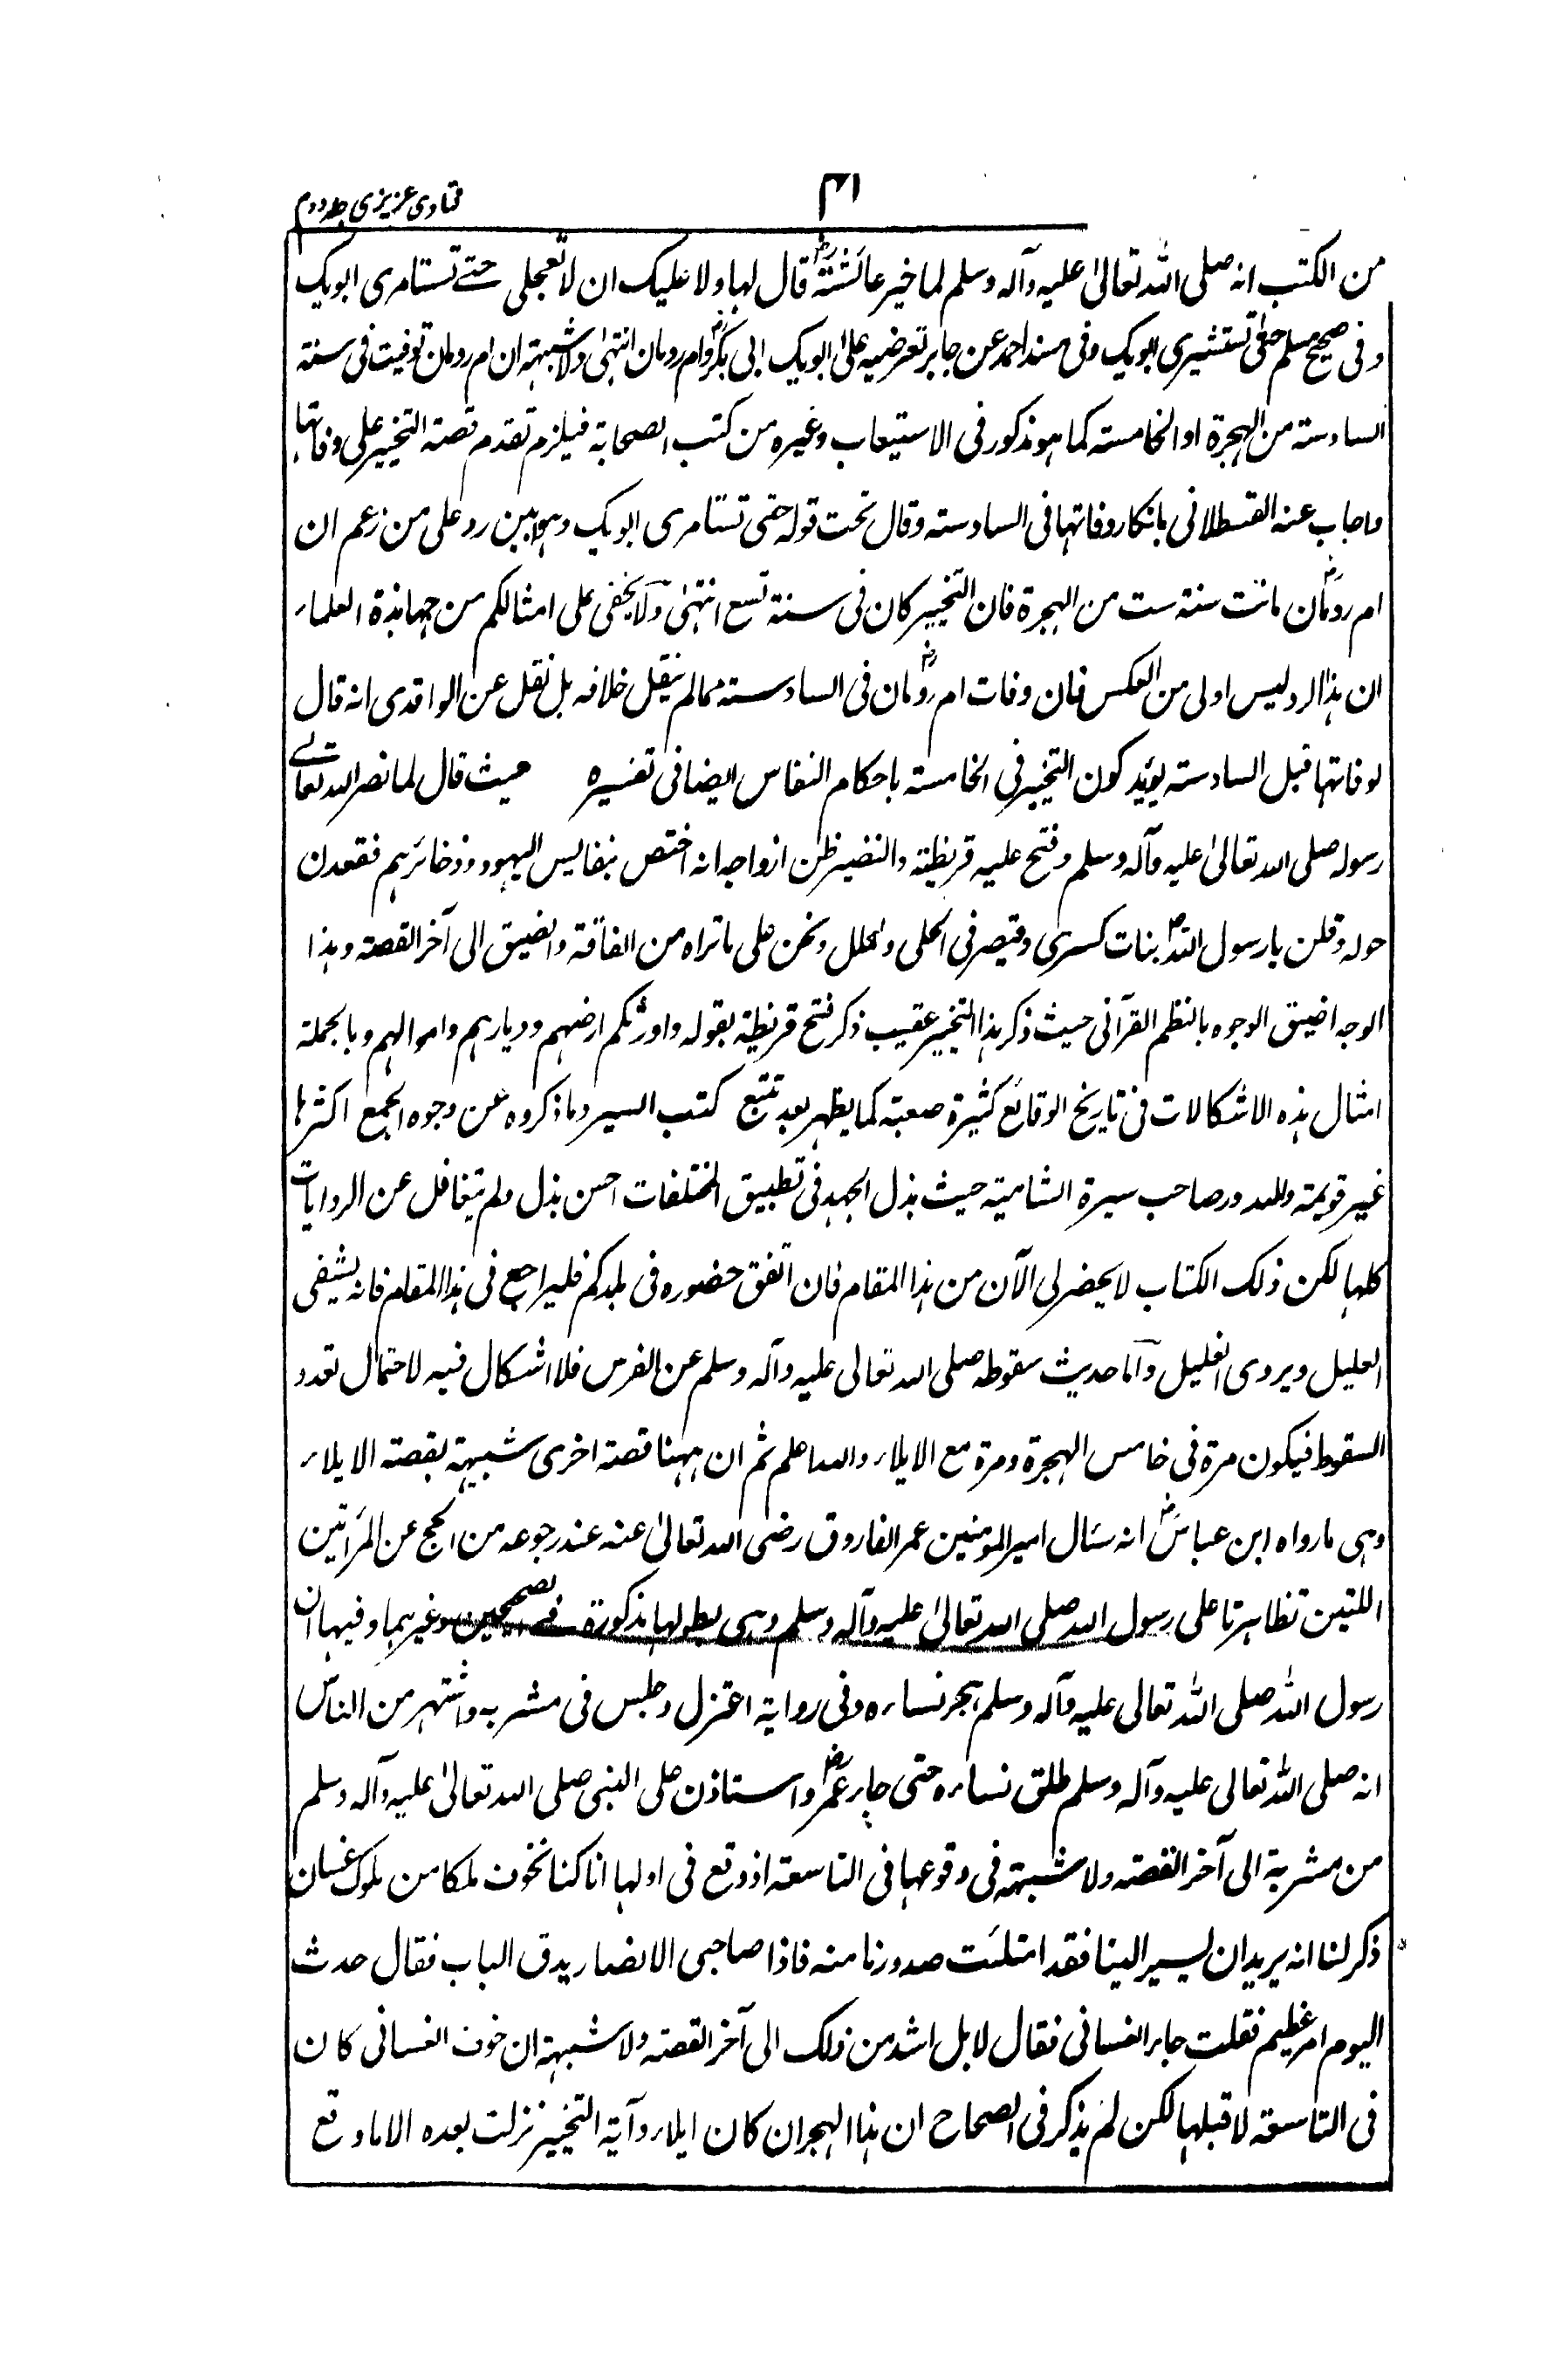 ۳۱
فتاوی عزیزی جلد دوم
من الکتب انہ صلی اللہ تعالیٰ علیہ وآلہ وسلم لما خیر عائشۃؓ قال لہا ولا علیک ان لا تعجلی حتے تستامری ابویک
وفی صحیح مسلم حتی تستشیری ابویک وفی مسند احمد عن جابر تعرضیہ علیٰ ابویک ابی بکرؓ وام رومان انتہیٰ ولا شبہتہ ان ام رومان توفیت فی سنتہ
السادستہ من الہجرۃ او الخامستہ کما ہو مذکور فی الاستیعاب وغیرہ من کتب الصحابۃ فیلزم تقدم قصتہ التخییر علی وفاتہا
واجاب عنہ القسطلانی بانکار وفاتہا فی السادستہ وقال تحت قولہ حتی تستامری ابویک وہو ابین رد علی من زعم ان
ام رومانؓ ماتت سنۃ ست من الہجرۃ فان التخییر کان فی سنۃ تسع انتہیٰ ولا یخفی علی امثالکم من جہابذۃ العلماء
ان ہذا الرد لیس اولی من العکس فان وفات ام رومانؓ فی السادستہ مما لم ینقل خلافہ بل نقل عن الواقدی انہ قال
لوفاتہا قبل السادستہ یؤید کون التخییر فی الخامستہ باحکام النفاس ایضا فی تفسیرہ حیث قال لما نصر اللہ تعالے
رسولہ صلی اللہ تعالیٰ علیہ وآلہ وسلم وفتح علیہ قریظتہ والنضیر ظن ازواجہ انہ اختص بنفایس الیہود وذخائرہم فقعدن
حولہ وقلن یا رسول اللہؐ بنات کسری وقیصر فی الحلی والحلل ونحن علی ما تراہ من الفاقۃ والضیق الی آخر القصتہ وہذا
الوجہ اضیق الوجوہ بالنظم القرآنی حیث ذکر ہذا التخییر عقیب ذکر فتح قریظۃ بقولہ واورثکم ارضہم ودیارہم واموالہم وبالجملۃ
امثال ہذہ الاشکالات فی تاریخ الوقائع کثیرۃ صعبۃ کما یظہر بعد تتبع کتب السیر وما ذکروہ عن وجوہ الجمع اکثرہا
غیر قویمۃ وللہ در صاحب سیرۃ الشامیۃ حیث بذل الجہد فی تطبیق المختلفات احسن بذل ولم یتغافل عن الروایات
کلہا لکن ذلک الکتاب لا یحضر لی الآن من ہذا المقام فان اتفق حضورہ فی بلدکم فلیراجع فی ہذا المقام فانہ یشفی
العلیل ویروی الغلیل واما حدیث سقوطہ صلی اللہ تعالی علیہ وآلہ وسلم عن الفرس فلا اشکال فیہ لاحتمال تعدد
السقوط فیکون مرۃ فی خامس الہجرۃ ومرۃ مع الایلاء واللہ اعلم ثم ان ہہنا قصتہ اخری شبیہۃ بقصتہ الایلاء
وہی ما رواہ ابن عباسؓ انہ سئال امیر المومنین عمر الفاروق رضی اللہ تعالیٰ عنہ عند رجوعہ من الحج عن المرٔاتین
اللتین تظاہرتا علی رسول اللہ صلی اللہ تعالیٰ علیہ وآلہ وسلم وہی بطولہا مذکورۃ فی الصحیحین وغیرہما وفیہا ان
رسول اللہ صلی اللہ تعالی علیہ وآلہ وسلم ہجر نساءہ وفی روایۃ اعتزل وجلس فی مشربہ واشتہر من الناس
انہ صلی اللہ تعالی علیہ وآلہ وسلم طلق نساءہ حتی جاء عمرؓ واستاذن علی النبی صلی اللہ تعالیٰ علیہ وآلہ وسلم
من مشربۃ الی آخر القصتہ ولا شبہتہ فی وقوعہا فی التاسعتہ اذ وقع فی اولہا انا کنا نخوف ملکا من ملوک غسان
ذکر لنا انہ یرید ان یسیر الینا فقد امتلئت صدورنا منہ فاذا صاحبی الانصار یدق الباب فقال حدث
الیوم امر عظیم فقلت جاء الغسانی فقال لا بل اشد من ذلک الی آخر القصتہ ولا شبہتہ ان خوف الغسانی کان
فی التاسعتہ لا قبلہا لکن لم یذکر فی الصحاح ان ہذا الہجران کان ایلاء وآیۃ التخییر نزلت بعدہ الا ما وقع